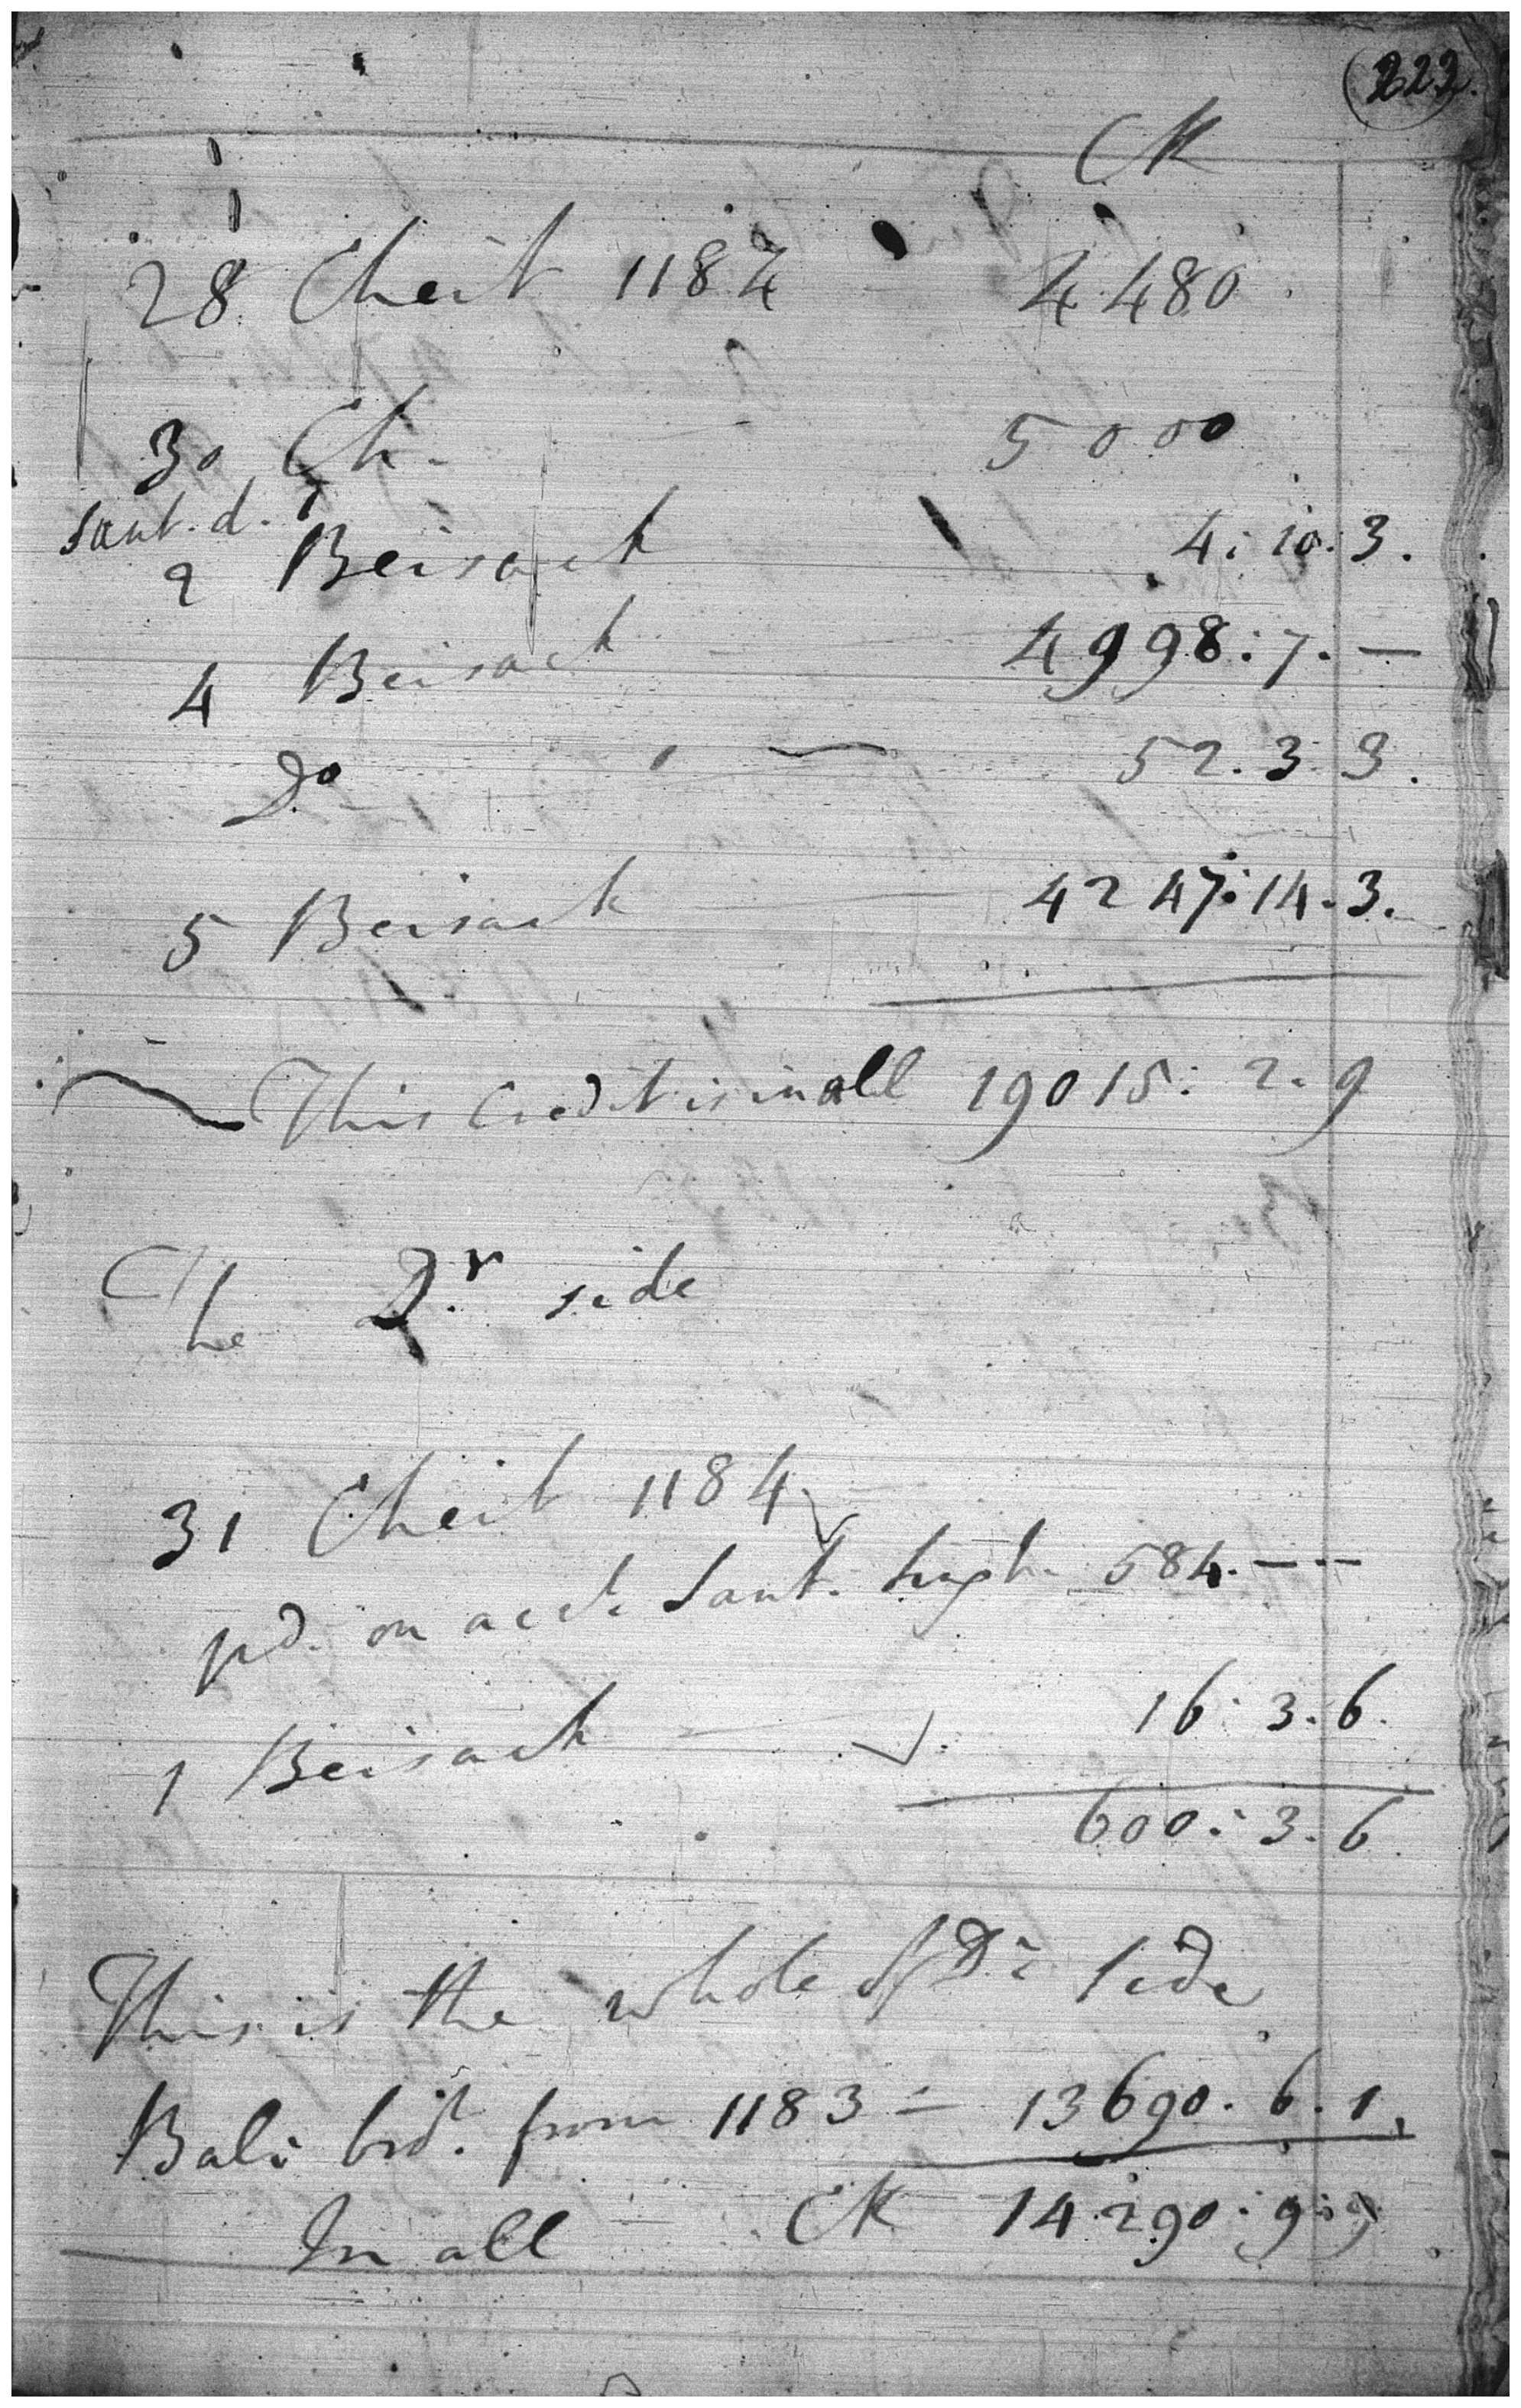 (222.)
CR
28 Cheit 1184 4480
30 Ch. 5000
Sant. d.
2 Beisack 4: 10. 3.
4 Beisack 4998: 7. —
Do 52. 3. 3.
5 Beisack 4247: 14. 3.
This Credit is in all 19015: 2. 9
The Dr side
31 Cheit 1184
pd. on acct. Sant. 584. — —
1 Beisack 16: 3. 6.
600: 3. 6
This is the whole of Dr. Side
Bale. brt. from 1183 = 13690. 6. 1.
In all CR 14290: 9: 9